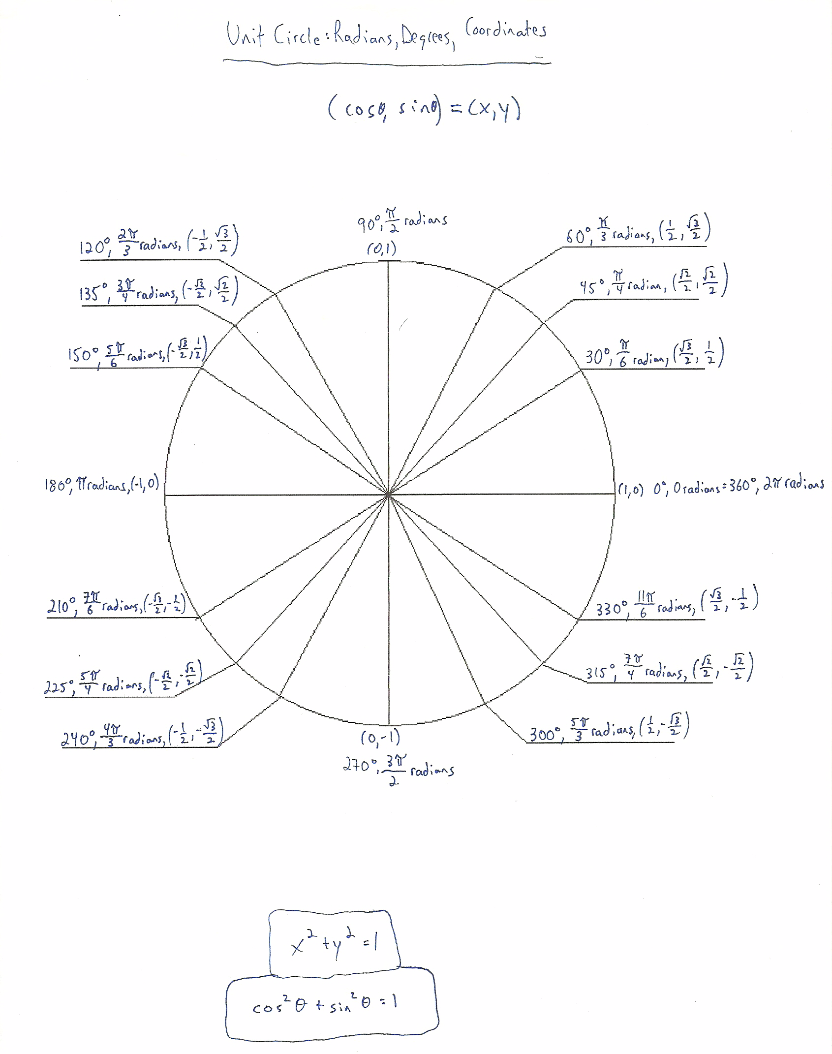 Unit Circle: Radians, Degrees, Coordinates
(cosθ, sinθ) = (x,y)
90°, π/2 radians
(0,1)
120°, 2π/3 radians, (-1/2, √3/2)
60°, π/3 radians, (1/2, √3/2)
135°, 3π/4 radians, (-√2/2, √2/2)
45°, π/4 radian, (√2/2, √2/2)
150°, 5π/6 radians, (-√3/2, 1/2)
30°, π/6 radian, (√3/2, 1/2)
180°, π radians, (-1,0)
(1,0) 0°, 0 radians = 360°, 2π radians
210°, 7π/6 radians, (-√3/2, -1/2)
330°, 11π/6 radians, (√3/2, -1/2)
225°, 5π/4 radians, (-√2/2, -√2/2)
315°, 7π/4 radians, (√2/2, -√2/2)
240°, 4π/3 radians, (-1/2, -√3/2)
300°, 5π/3 radians, (1/2, -√3/2)
(0,-1)
270°, 3π/2 radians
x²+y²=1
cos²θ + sin²θ = 1